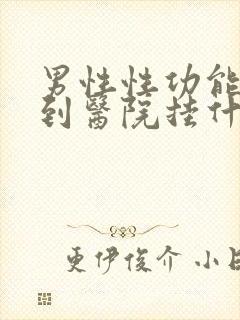 男性性功能
到醫院挂什
更伊俊介 小